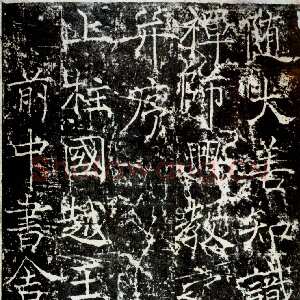 隨大善知識
禪師興教之
并序
上柱國越王
前中書舍